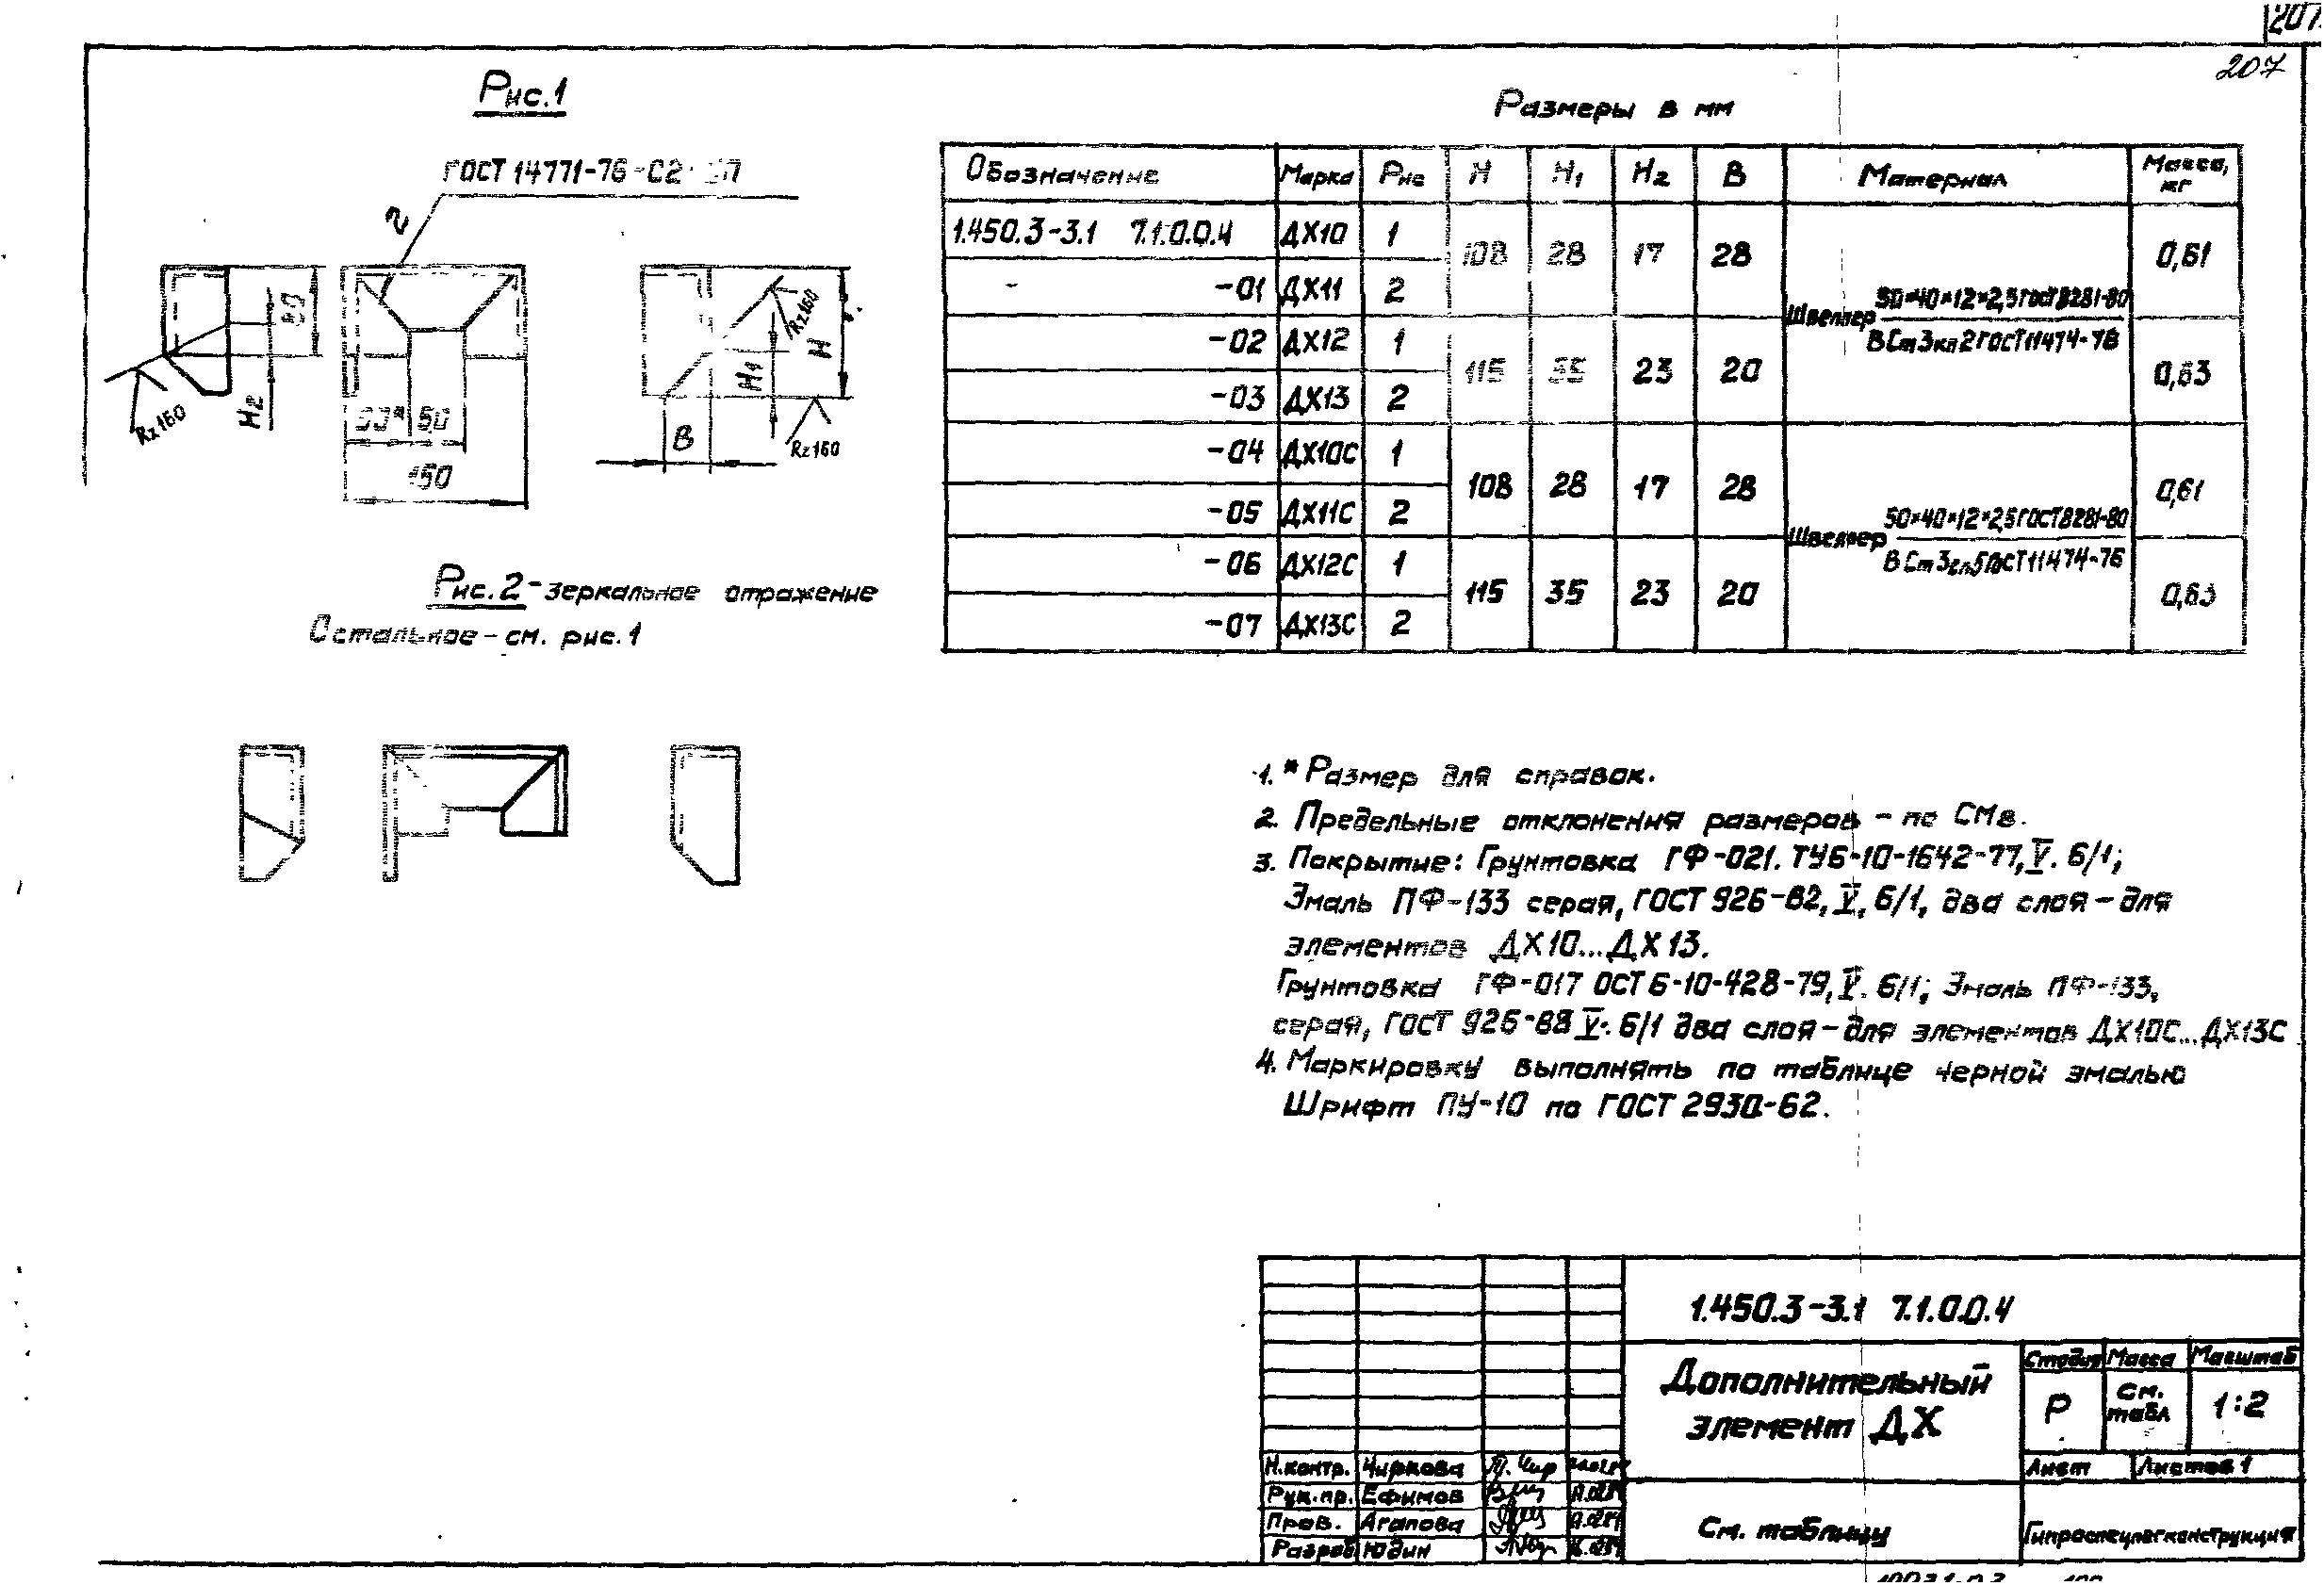 207
207
Рис.1
ГОСТ 14771-76-С2-
2
Rz160
H2
50
150
B
H1
H
Rz160
Rz160
Рис.2 - зеркальное отражение
Остальное - см. рис.1
Размеры в мм
Обозначение Марка Рис H H1 H2 B Материал Масса, кг
1.450.3-3.1 7.1.0.0.4 ДХ10 1 108 28 17 28 0,61
-01 ДХ11 2
Швеллер 50×40×12×2,5 ГОСТ 8281-80
ВСт3кп2 ГОСТ 11474-76
-02 ДХ12 1 115 35 23 20 0,63
-03 ДХ13 2
-04 ДХ10С 1 108 28 17 28 0,61
-05 ДХ11С 2
Швеллер 50×40×12×2,5 ГОСТ 8281-80
ВСт3сп5 ГОСТ 11474-76
-06 ДХ12С 1 115 35 23 20 0,63
-07 ДХ13С 2
1. * Размер для справок.
2. Предельные отклонения размеров - по СМ8.
3. Покрытие: Грунтовка ГФ-021. ТУ6-10-1642-77, V. 6/1;
Эмаль ПФ-133 серая, ГОСТ 926-82, V, 6/1, два слоя - для
элементов ДХ10...ДХ13.
Грунтовка ГФ-017 ОСТ 6-10-428-79, V. 6/1; Эмаль ПФ-133,
серая, ГОСТ 926-88 V. 6/1 два слоя - для элементов ДХ10С...ДХ13С
4. Маркировку выполнять по таблице черной эмалью
Шрифт ПУ-10 по ГОСТ 2930-62.
1.450.3-3.1 7.1.0.0.4
Дополнительный
элемент ДХ
Стадия Масса Масштаб
Р См. табл 1:2
Лист Листов 1
См. таблицу
Гипроспецлегконструкция
Н.контр. Чиркова
Рук.пр. Ефимов
Пров. Агапова
Разраб Юдин